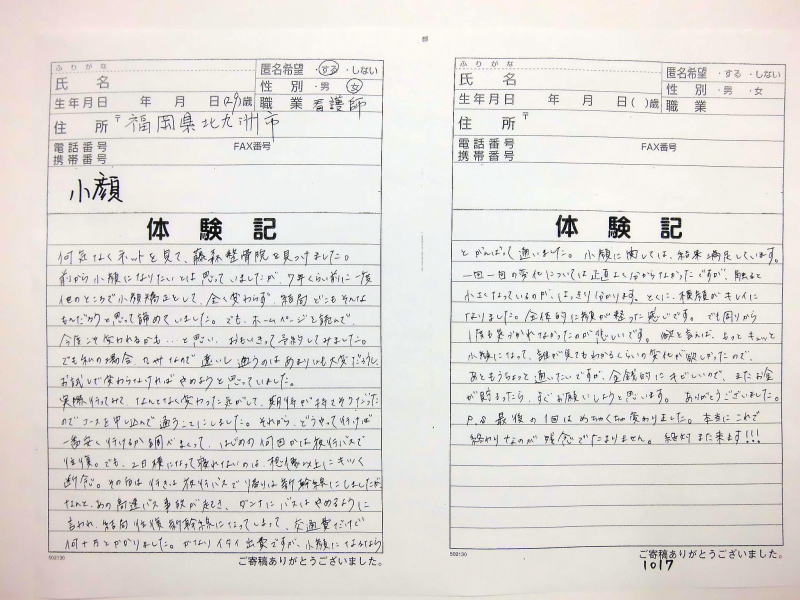 ふりがな
氏 名
匿名希望 ・する ・しない
性 別 ・男 ・女
生年月日 年 月 日(29)歳
職 業 看護師
住 所 〒福岡県北九洲市
電話番号 FAX番号
携帯番号
小顔
体験記
何気なくネットを見て、藤森整骨院を見つけました。
前から小顔になりたいとは思っていましたが、7年くらい前に一度
他のところで小顔矯正をして、全く変わらず、結局どこもそんな
もんだろうと思って諦めていました。でも、ホームページを読んで、
今度こそ変われるかも…と思い、おもいきって予約してみました。
でも私の場合、九州なので遠いし、通うのはあまりにも大変だろうし、
お試しで変わらなければやめようと思っていました。
実際行ってみて、なんとなく変わった気がして、期待が持てそうだった
のでコースを申し込んで通うことにしました。それから、どうやって行けば
一番安く行けるか調べまくって、はじめの何回かは夜行バスで
往復。でも、2日様になって寝れないのは、想像以上にキツく
断念。その後は行きは夜行バスで帰りは新幹線にしましたが、
なんと、あの高速バス事故が起き、ダンナにバスはやめるように
言われ、結局往復新幹線になってしまって、交通費だけで
何十万とかかりました。かなりイタイ出費ですが、小顔になるなら
502130
ご寄稿ありがとうございました。
ふりがな
氏 名
匿名希望 ・する ・しない
性 別 ・男 ・女
生年月日 年 月 日( )歳
職 業
住 所 〒
電話番号 FAX番号
携帯番号
体験記
とがんばって通いました。小顔に関しては、結果満足しています。
一回一回の変化については正直よく分からなかったですが、触ると
小さくなっているのが、はっきり分かります。とくに、横顔がキレイに
なりました。全体的に顔が整った感じです。でも周りから
1度も気づかれなかったのが悲しいです。欲を言えば、もっとキュッと
小顔になって、誰が見てもわかるくらいの変化が欲しかったので、
あともうちょっと通いたいですが、金銭的にキビしいので、またお金
が貯まったら、すぐお願いしようと思います。ありがとうございました。
P.S 最後の1回はめちゃくちゃ変わりました。本当にこれで
終わりなのが残念でたまりません。絶対また来ます!!!
502130
ご寄稿ありがとうございました。
1017